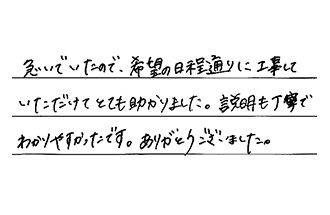 急いでいたので、希望の日程通りに工事して
いただけてとても助かりました。説明も丁寧で
わかりやすかったです。ありがとうございました。